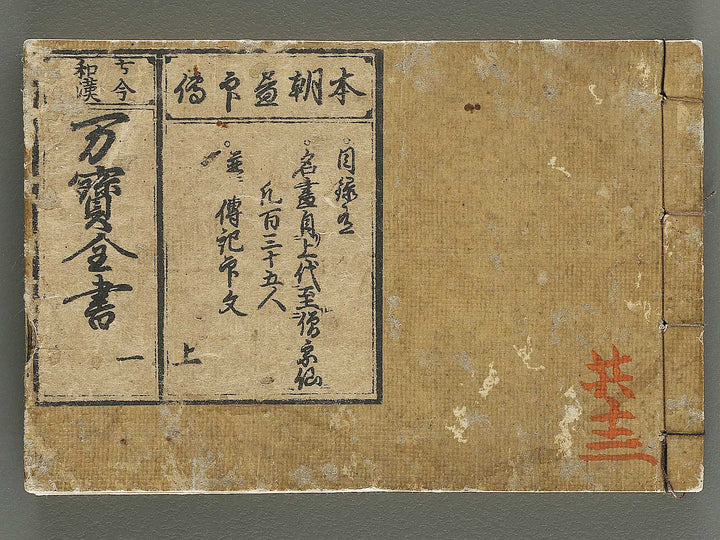 本朝畫印傳
目録有
名畫自上代至僧宗仙
凡百三十五人
並ニ傳記印文
上
古今
和漢
万寶全書
一
共十三